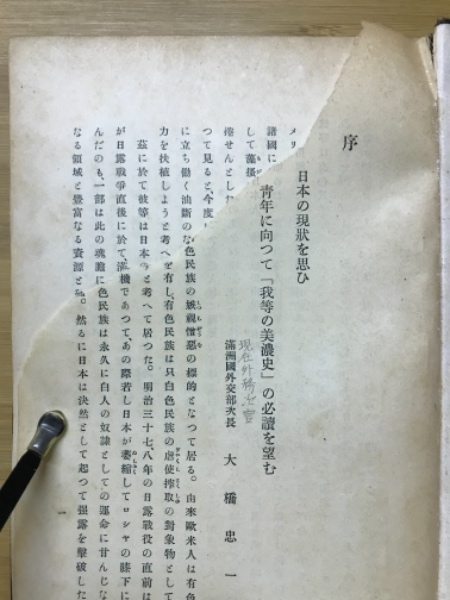 序
日本の現狀を思ひ
青年に向つて「我等の美濃史」の必讀を望む
現在外務次官
滿洲國外交部次長 大橋忠一
メリ
諸國に
して藻搔
捲せんとした
つて見ると、今度
に立ち働く油斷のな色民族の嫉視憎惡の標的となつて居る。由來歐米人は有色
力を扶植しようと考へを有し、有色民族は只白色民族の虐使搾取の對象物として
茲に於て彼等は日本の と考へて居つた。明治三十七、八年の日露戰役の直前は
が日露戰爭直後に於て 機であつて、あの際若し日本が萎縮してロシヤの膝下に
んだのも、一部は此の魂膽に色民族は永久に白人の奴隸としての運命に甘んじな
なる領域と豐富なる資源と 。然るに日本は決然として起つて强露を擊破した
一